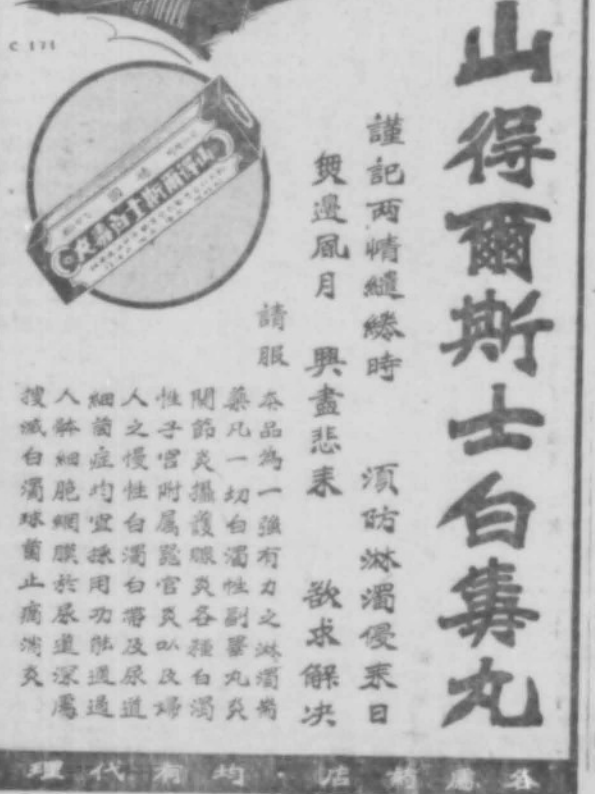 山得爾斯士白篤丸
謹記兩情繾綣時 須防淋濁侵來日
無邊風月 興盡悲來 欲求解决
請服
本品為一強有力之淋濁
藥凡一切白濁性副睪丸炎
關節炎攝護腺炎各種白濁
性子宮附属器官炎以及婦
人之慢性白濁白帶及尿道
細菌症均宜採用功能透過
人體細胞網膜於尿道深處
搜滅白濁球菌止痛消炎
各處藥店・均有代理
C 171